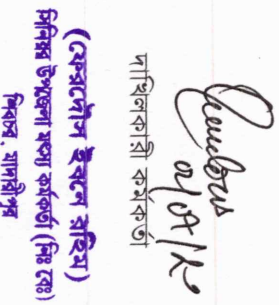 দাখিলকারী কর্মকর্তা
(ফেরদৌস ইবনে রহিম)
সিনিয়র উপজেলা মৎস্য কর্মকর্তা (নিঃ বেঃ)
শিবচর, মাদারীপুর